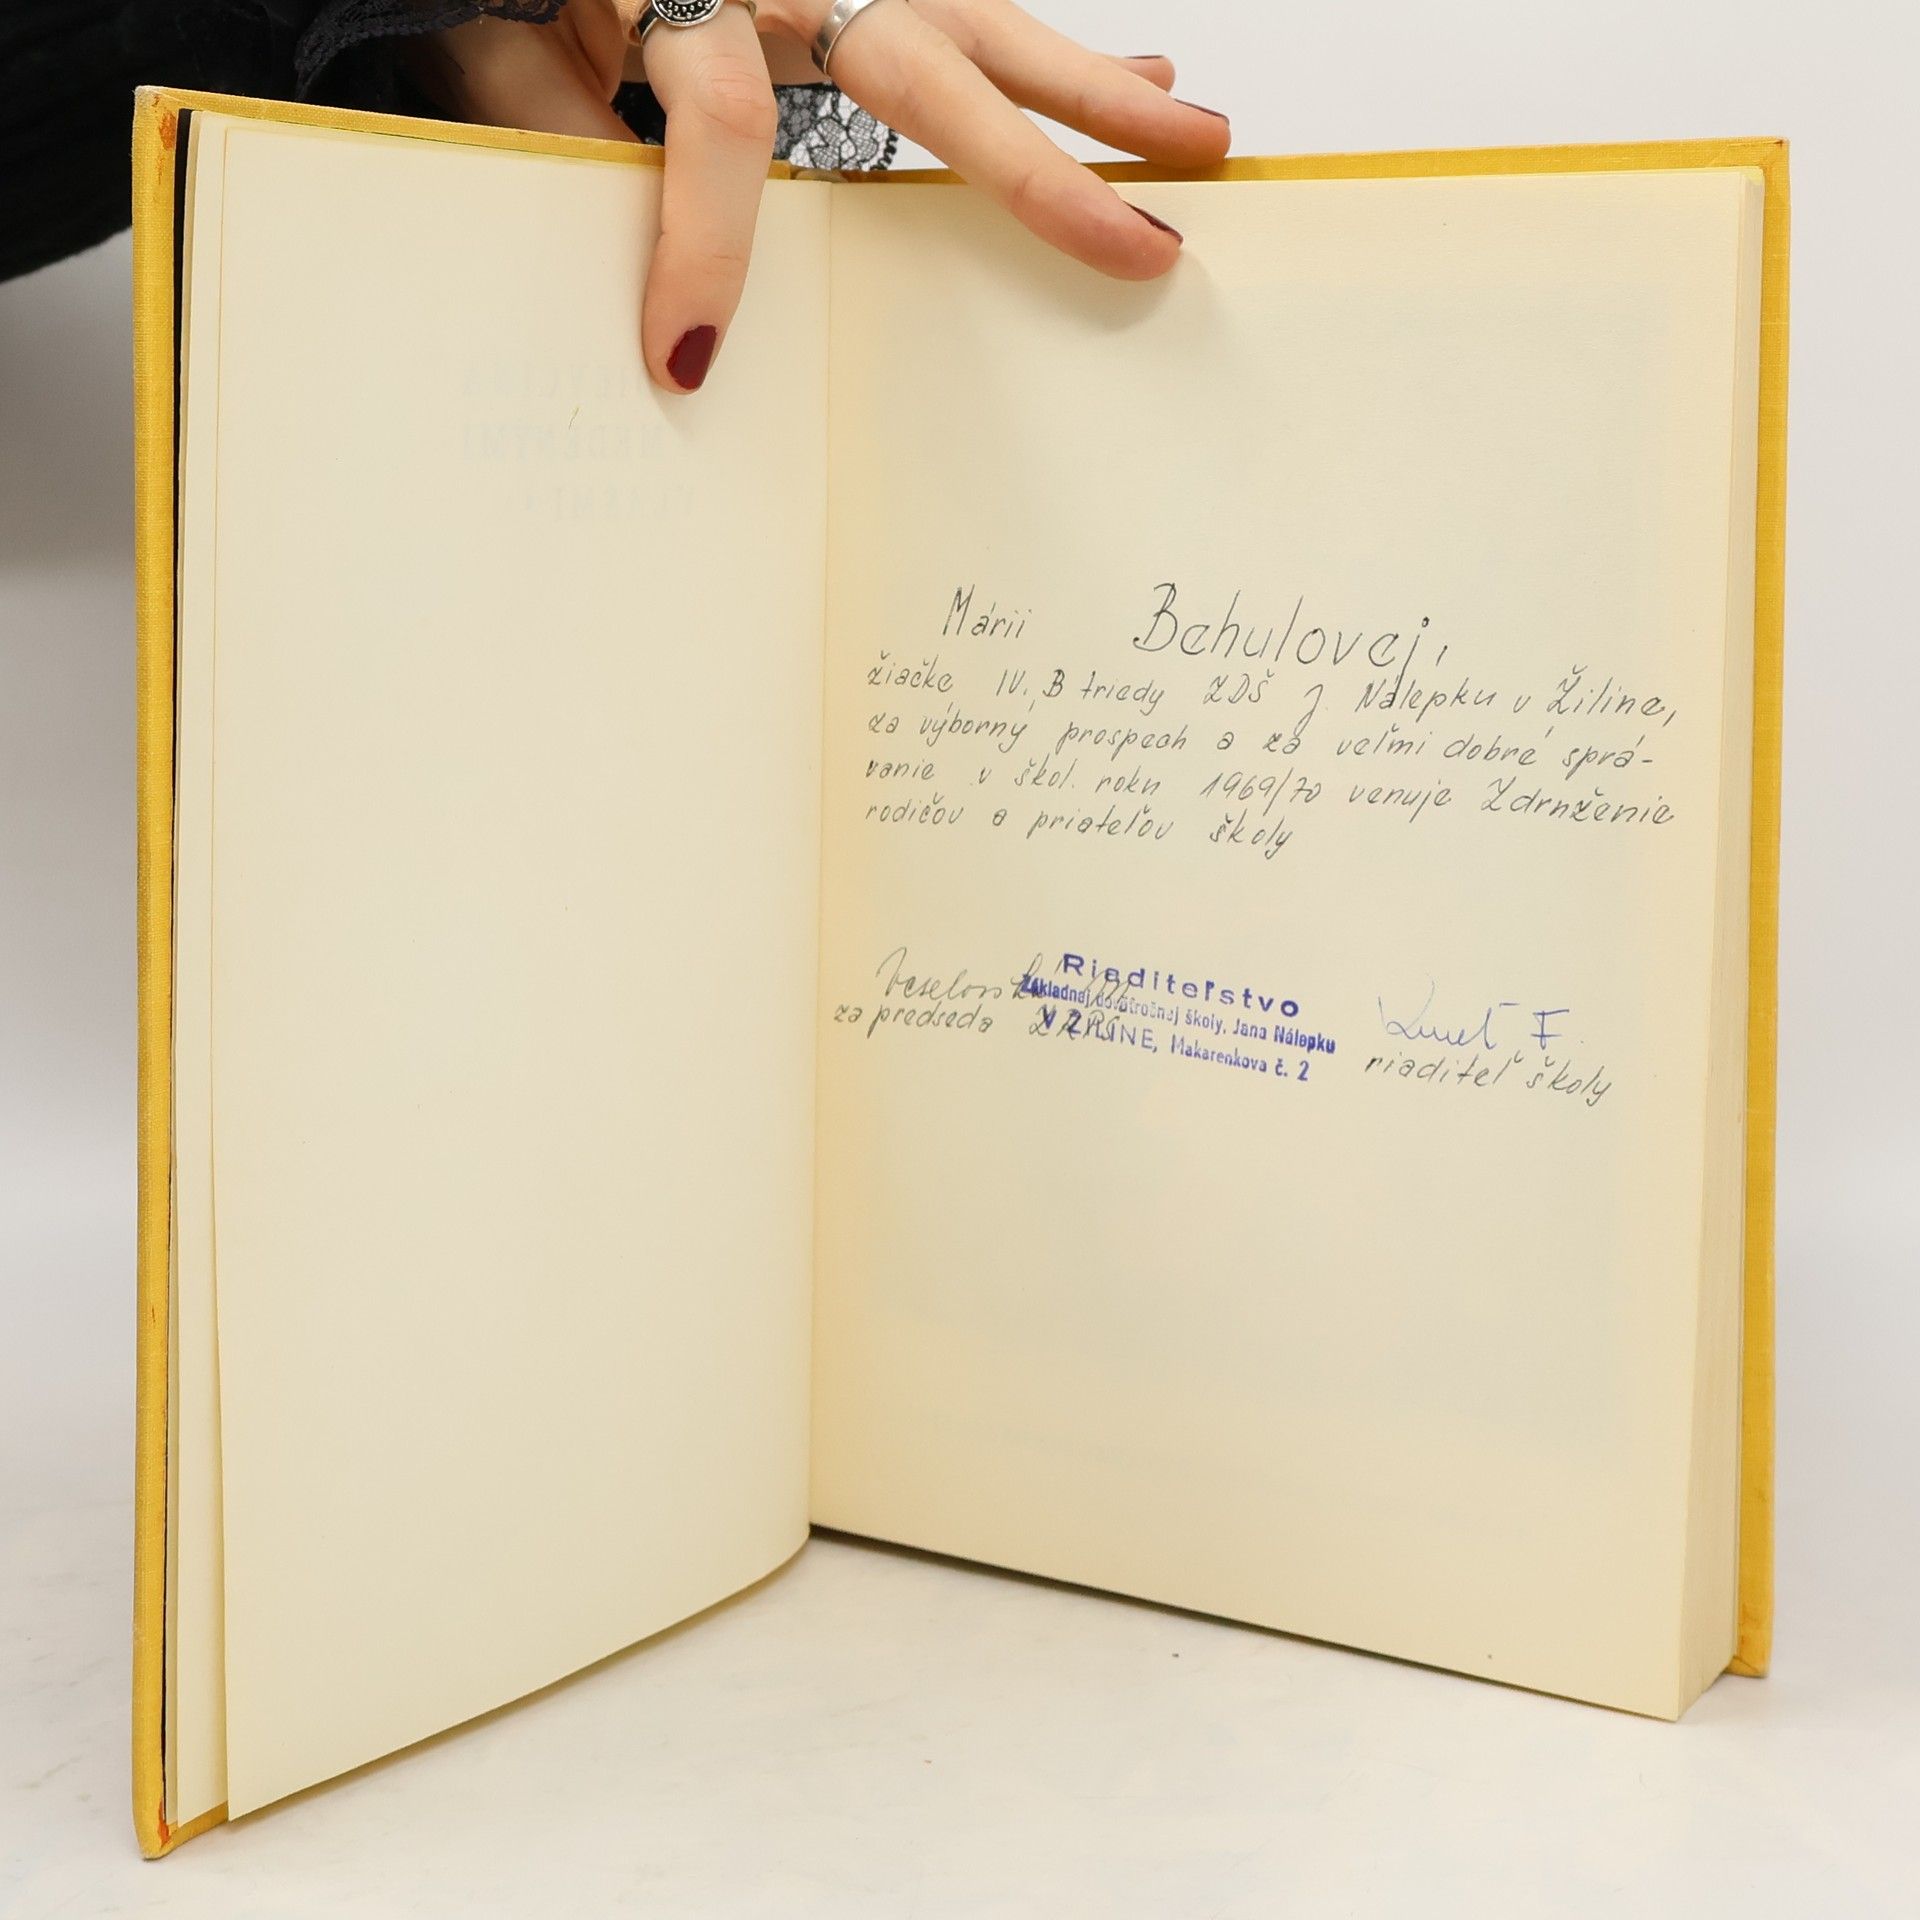 Márii Behulovej,
žiačke IV. B triedy ZDŠ J. Nálepku v Žiline,
za výborný prospech a za veľmi dobré sprá-
vanie v škol. roku 1969/70 venuje Združenie
rodičov a priateľov školy
Riaditeľstvo
Základnej deväťročnej školy, Jana Nálepku
V ŽILINE, Makarenkova č. 2
za predseda ZRPŠ
riaditeľ školy